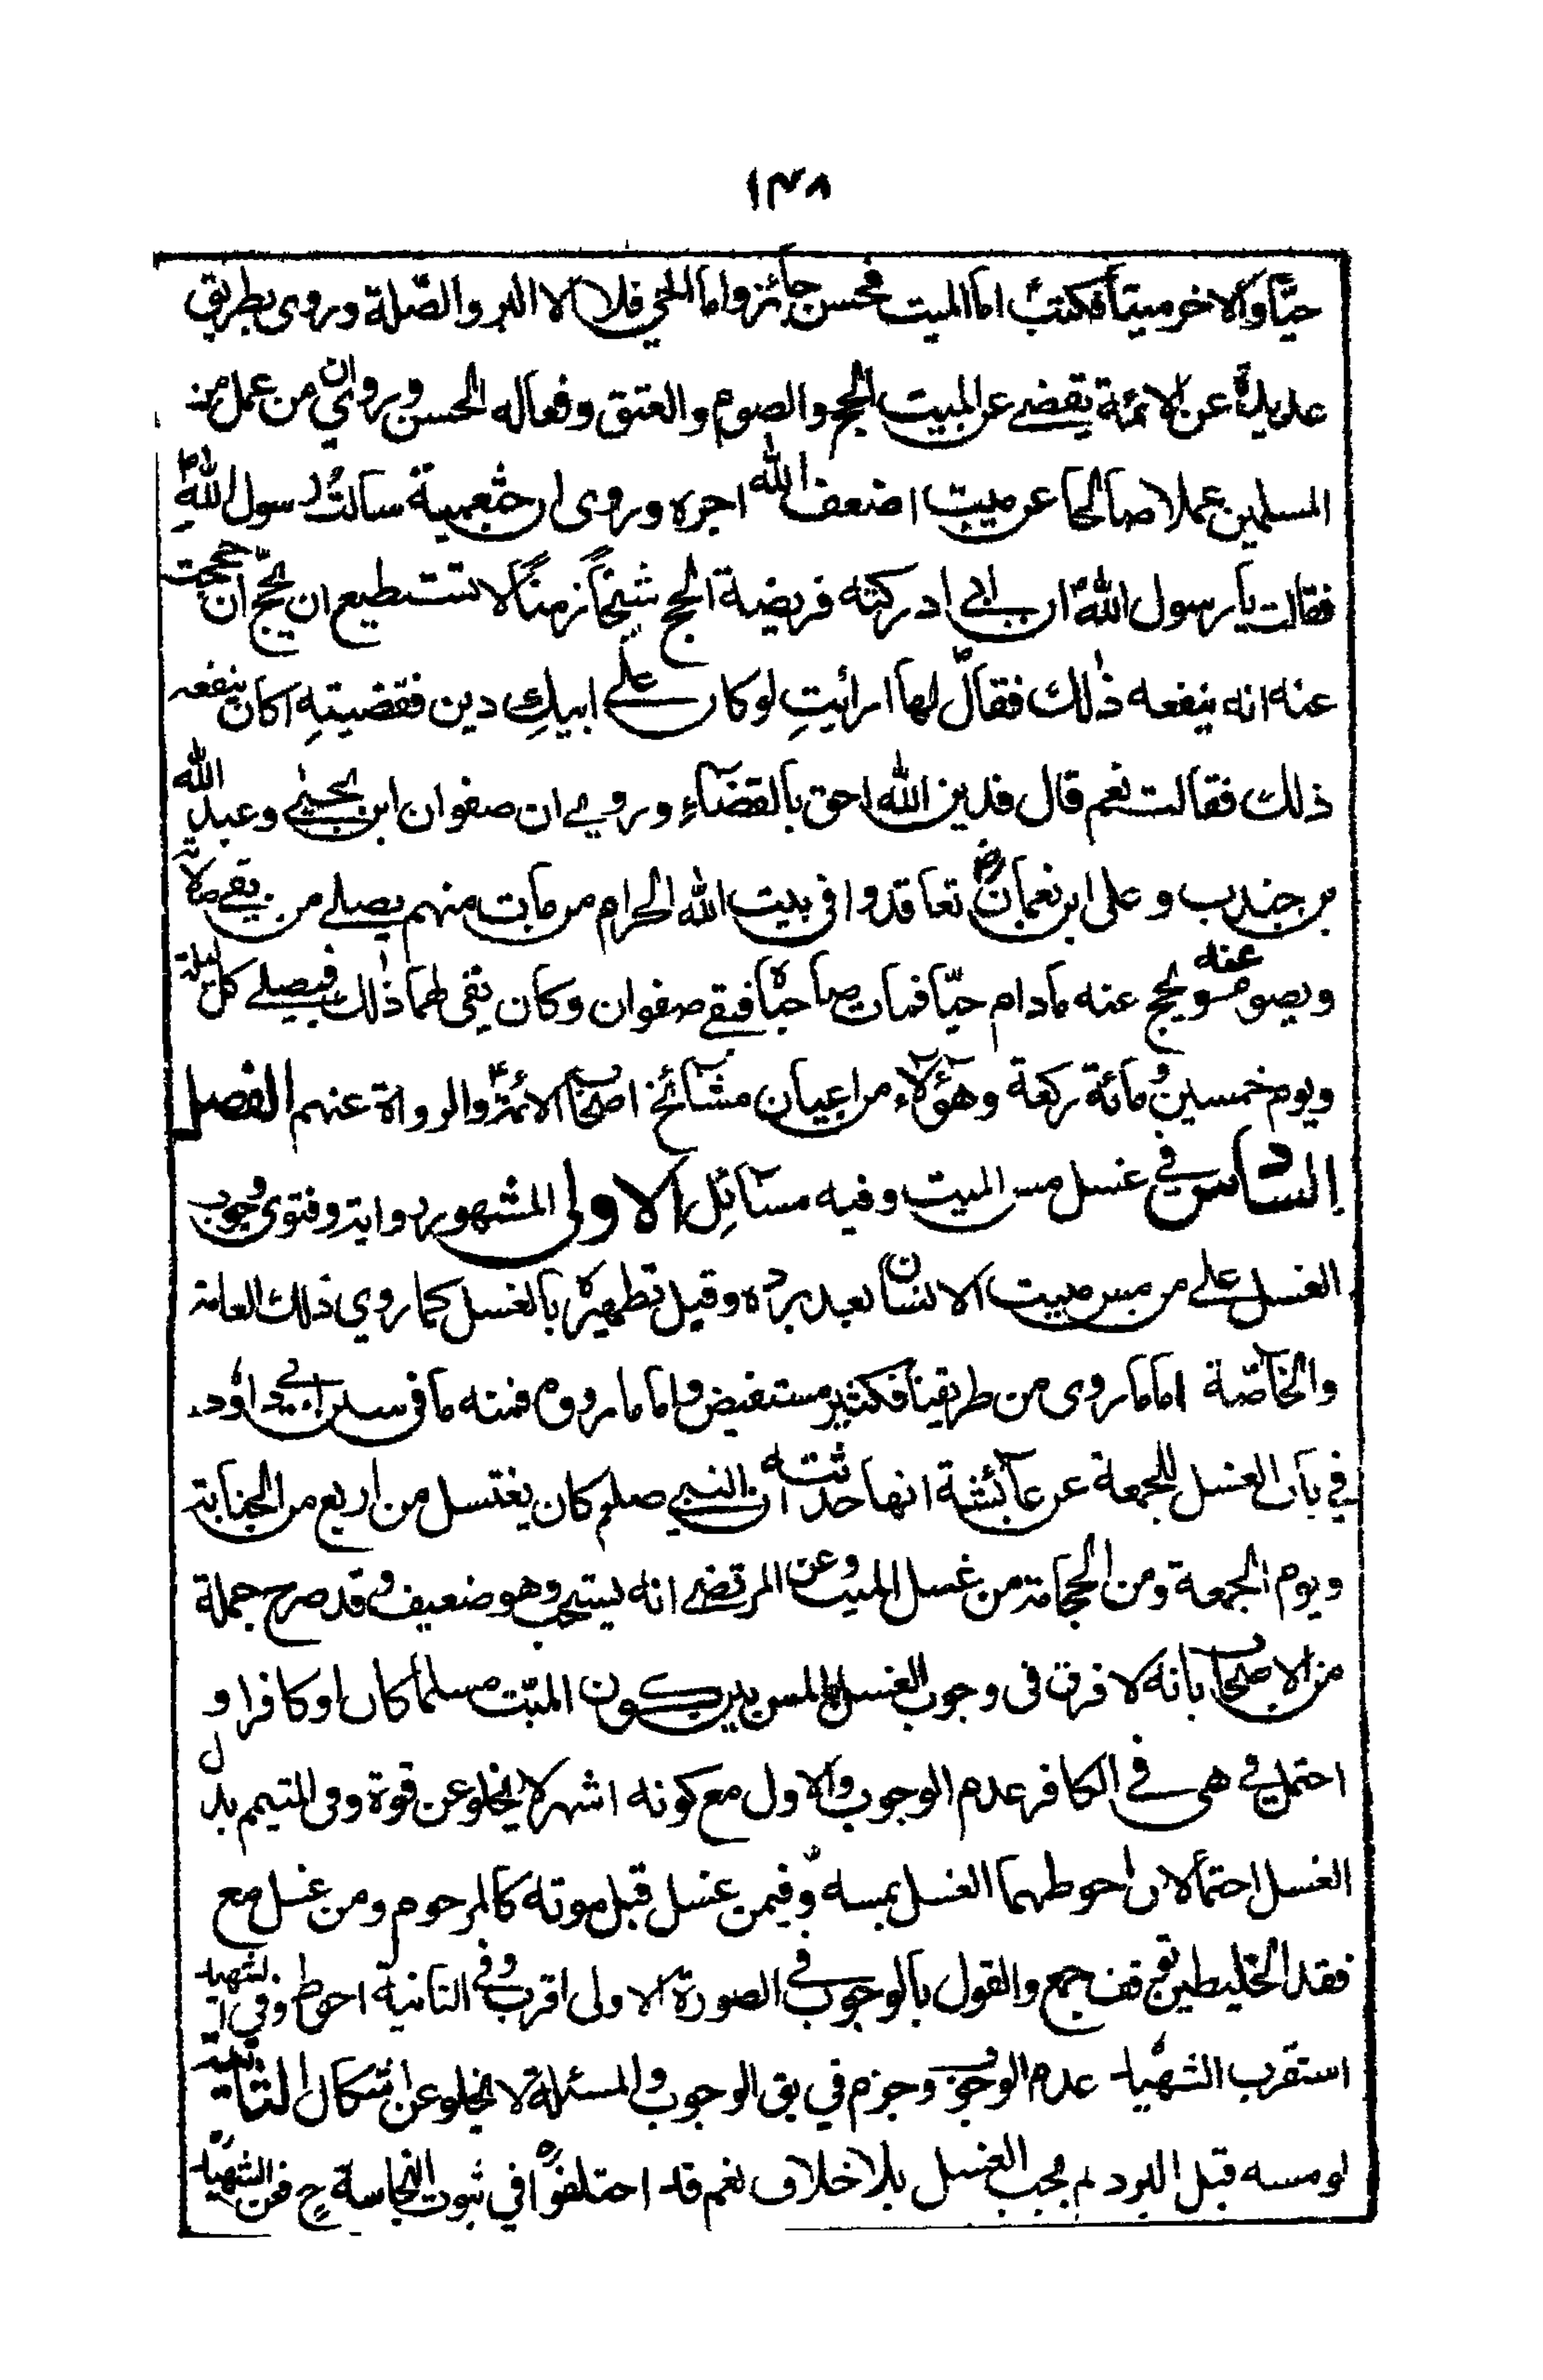 ١٣٨
حيّاً والاخر ميتاً فكتبؑ اما الميت فحسن جائز واما الحي فلا الا البر والصّلة وروى بطريق
عديدة عن الائمة يقضے عن الميت الحج والصوم والعتق وفعاله الحسن وروي ان من عمل من
المسلمين عملا صالحا عن ميت اضعف الله اجره وروى ان خثعمية سالتُ رسول اللهؐ
فقالت يا رسول اللهؐ ان ابي ادركته فريضة الحج شيخاً زمناً لا تستطيع ان يحجّ ان حججت
عنه انه ينفعه ذٰلك فقالؐ لها ارائيتِ لو كان علے ابيكِ دين فقضيتِه اكان ينفعه
ذلك فقالت نعم قال فدين الله احق بالقضآءِ وروي ان صفوان ابن يحيىٰ وعبد الله
بن جندب وعلى ابن نعمانؓ تعاقدوا في بيت الله الحرام من مات منهم يصلے من بقے صلاته
ويصوم عنه ويحج عنه مادام حيّا فمات صاحباه فبقے صفوان وكان يفي لهما ذٰلك فيصلے كل ليلة
ويوم خمسين ومائة ركعة وهؤلآء من اعيان مشآئخ اصحاب الائمةؑ والرواة عنهم الفصل
السّادس في غسل مس الميت وفيه مسآئل الاولى المشهور رواية وفتوى وجوب
الغسل علے من مس ميت الانسان بعد برده وقيل تطهيره بالغسل كما روي ذلك العامة
والخآصّة اما ما روى من طريقنا فكثير مستفيض واما ما رووه فمنه ما في سنن ابي داؤد
في باب الغسل للجمعة عن عآئشة انها حدثته ان النبي صلم كان يغتسل من اربع من الجنابة
ويوم الجمعة ومن الحجامة من غسل الميت وعن المرتضے انه يستحب وهو ضعيف وقد صرح جملة
من الاصحاب بانه لا فرق في وجوب الغسل للمس بين كون الميّت مسلما كان او كافرا و
احتمل في هى في الكافر عدم الوجوب والاول مع كونه اشهر لا يخلو عن قوة وفي المتيمم بدل
الغسل احتمالان احوطهما الغسل بمسه وفيمن غسل قبل موته كالمرحوم ومن غسل مع
فقد الخليطين توقف جمع والقول بالوجوب في الصورة الاولى اقرب وفي الثانية احوط وفي الشهيد
استقرب الشهيد عدم الوجوب وجزم في بق الوجوب والمسئلة لا يخلو عن اشكال الثانية
لو مسه قبل البرد لم يجب الغسل بلا خلاف نعم قد اختلفوا في ثبوت النجاسة ح فعن الشهيد